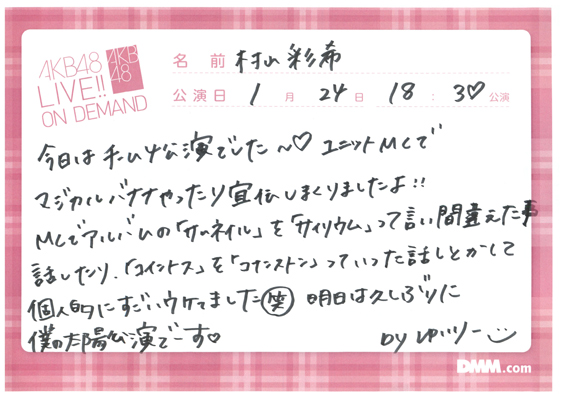 AKB48
LIVE!!
ON DEMAND
AKB
48
名前 村山彩希
公演日 1月24日 18:30公演
今日は手つな公演でした〜♡ ユニットMCで
マジカルバナナやったり宣伝しまくりましたよ!!
MCでアルバムの「サムネイル」を「サイリウム」って言い間違えた事
話したり、「コイントス」を「コナンストン」っていった話しとかして
個人的にすごいウケてました(笑) 明日は久しぶりに
僕の太陽公演でーす♡ by ゆいりー
DMM.com